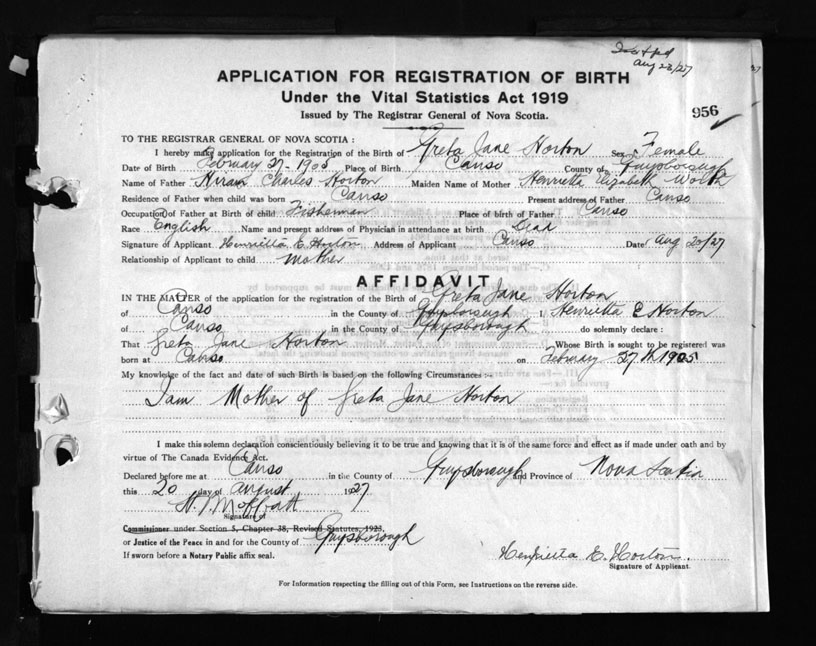 Aug 22/27
APPLICATION FOR REGISTRATION OF BIRTH
Under the Vital Statistics Act 1919
Issued by The Registrar General of Nova Scotia.
956
TO THE REGISTRAR GENERAL OF NOVA SCOTIA:
I hereby make application for the Registration of the Birth of Greta Jane Horton Sex Female
Date of Birth February 27 - 1905 Place of Birth Canso County of Guysborough
Name of Father Hiram Charles Horton Maiden Name of Mother Henrietta Elizabeth Worth
Residence of Father when child was born Canso Present address of Father Canso
Occupation of Father at Birth of child Fisherman Place of birth of Father Canso
Race English Name and present address of Physician in attendance at birth Dead
Signature of Applicant Henrietta E. Horton Address of Applicant Canso Date Aug 20/27
Relationship of Applicant to child Mother
AFFIDAVIT
IN THE MATTER of the application for the registration of the Birth of Greta Jane Horton
of Canso in the County of Guysborough I, Henrietta E Horton
of Canso in the County of Guysborough do solemnly declare:
That Greta Jane Horton Whose Birth is sought to be registered was
born at Canso on February 27th 1905
My knowledge of the fact and date of such Birth is based on the following Circumstances:-
I am Mother of Greta Jane Horton
I make this solemn declaration conscientiously believing it to be true and knowing that it is of the same force and effect as if made under oath and by
virtue of The Canada Evidence Act.
Declared before me at Canso in the County of Guysborough and Province of Nova Scotia
this 20 day of August 1927
H. T. Moffatt
Signature of
Commissioner under Section 5, Chapter 38, Revised Statutes, 1923,
or Justice of the Peace in and for the County of Guysborough
If sworn before a Notary Public affix seal.
Henrietta E. Horton.
Signature of Applicant.
For Information respecting the filling out of this Form, see Instructions on the reverse side.